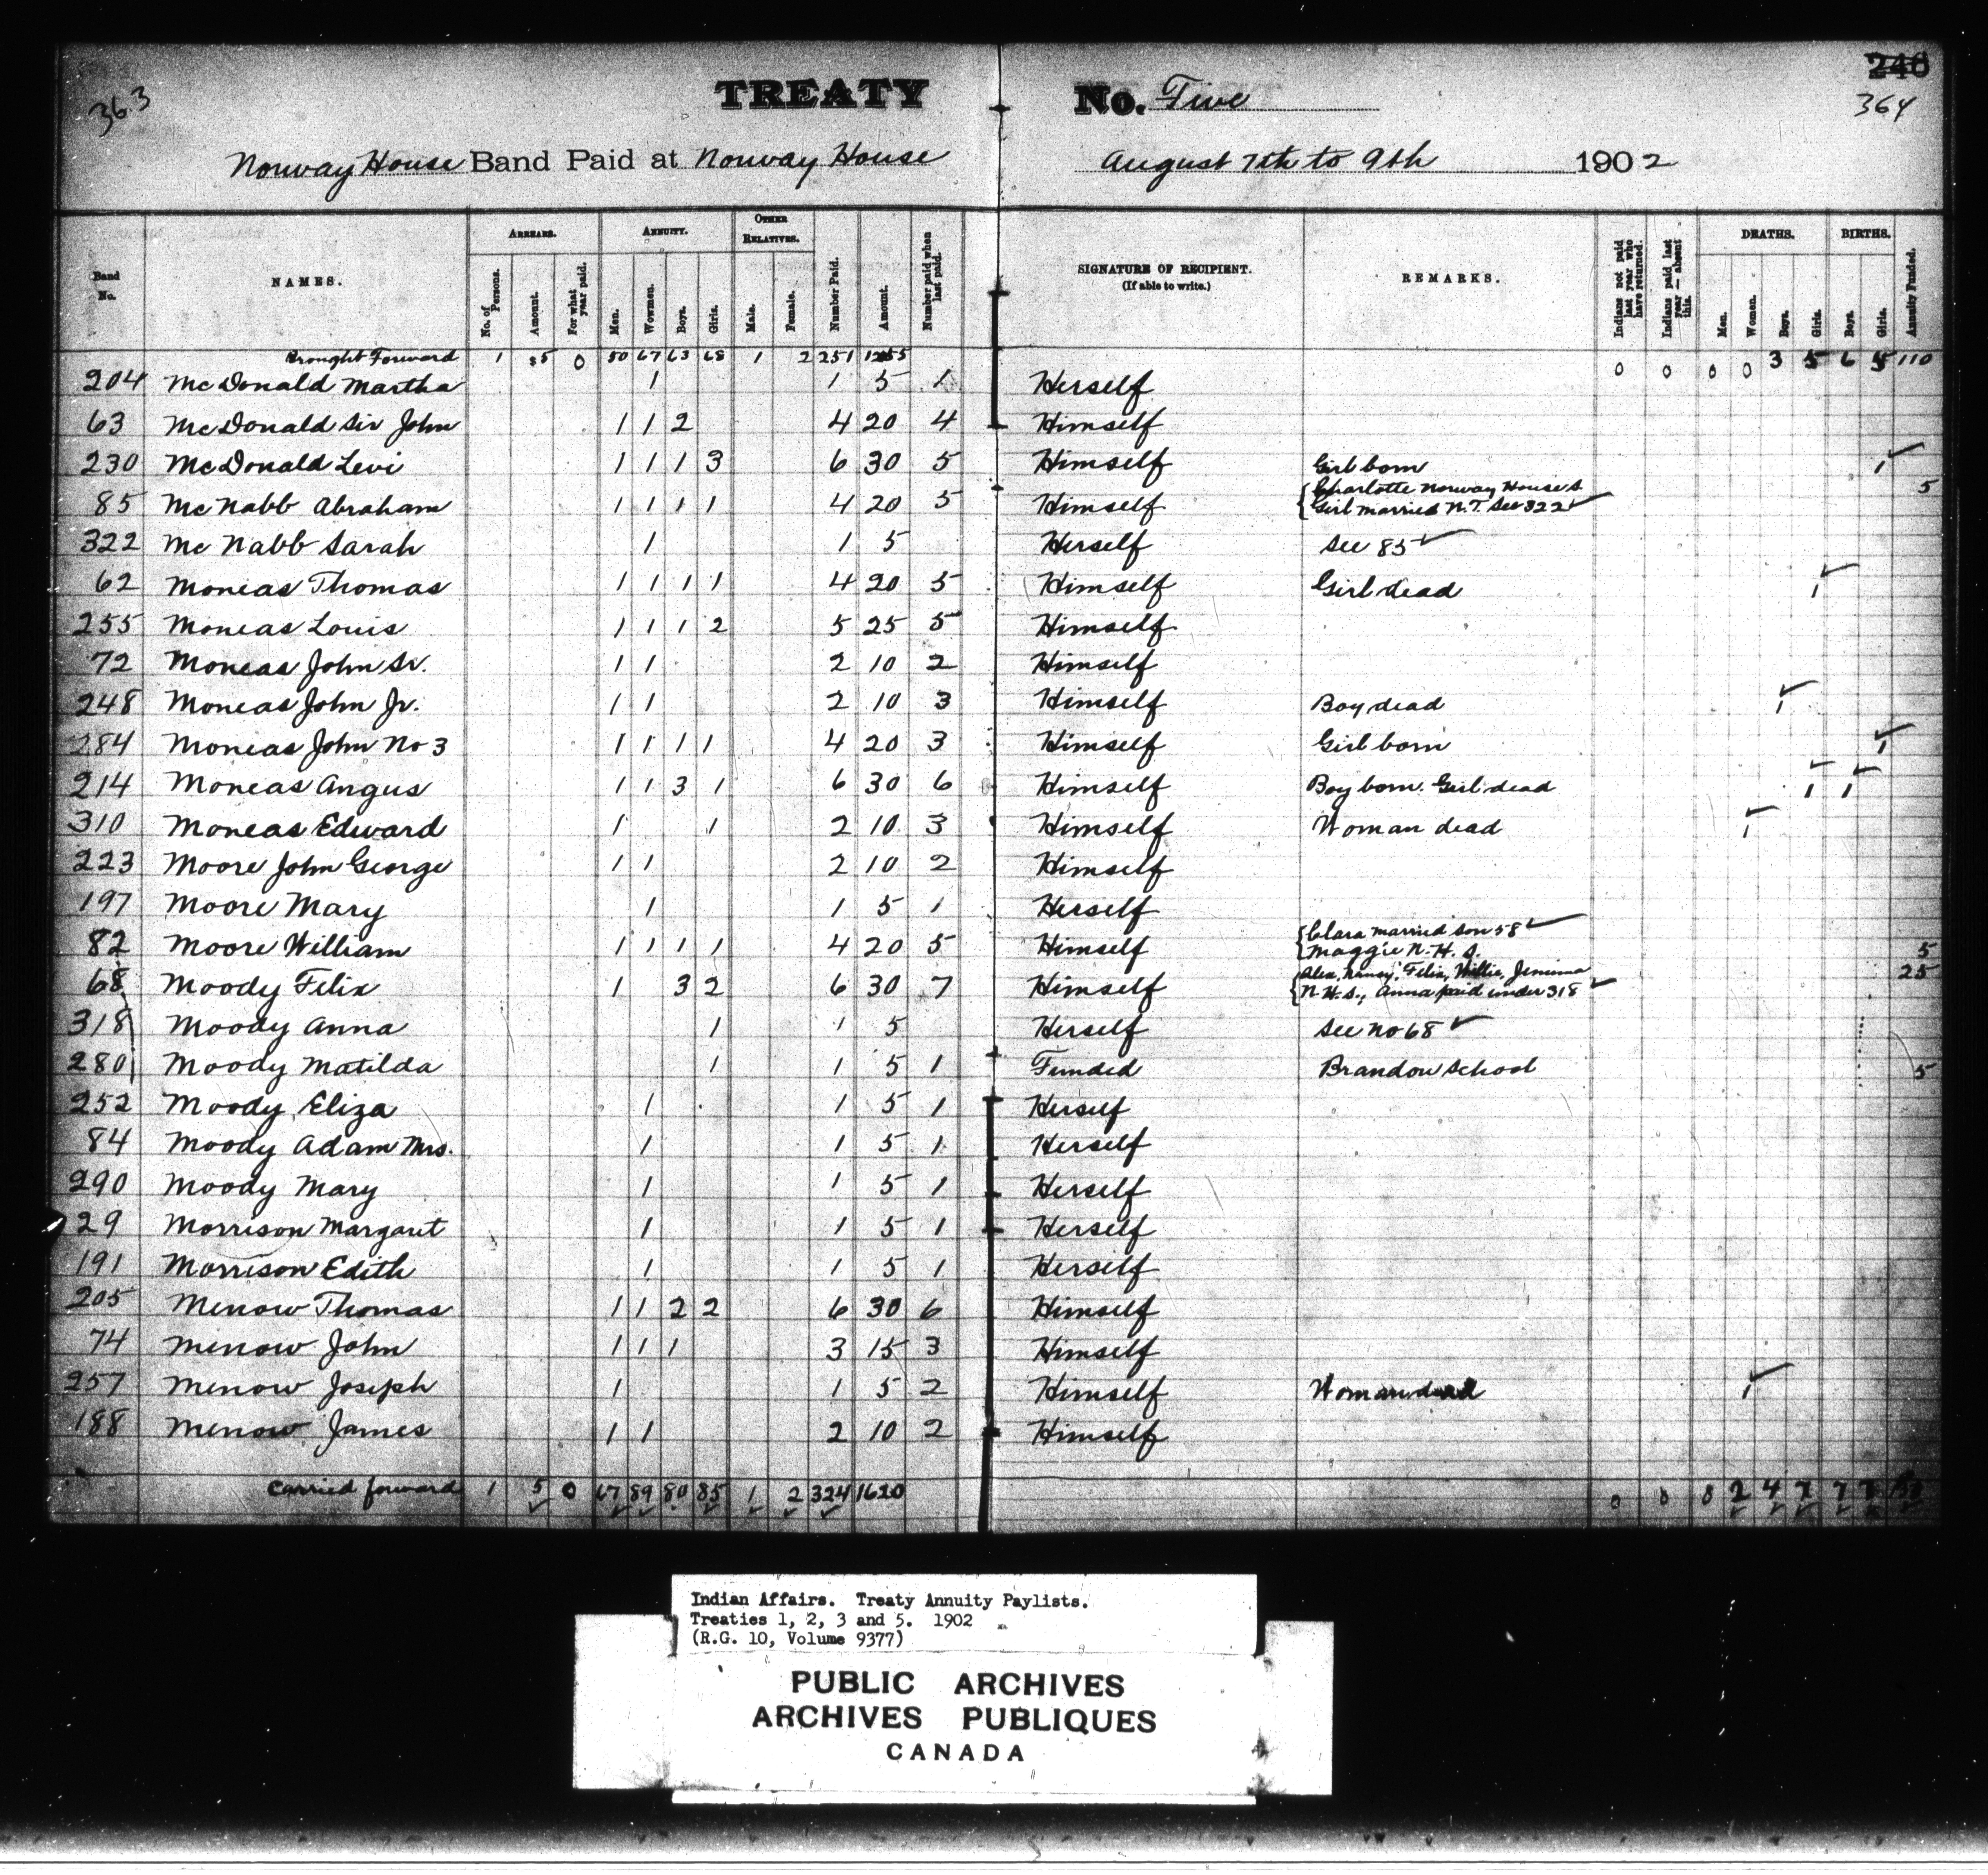 36.3
TREATY No. Five
246
364
Norway House Band Paid at Norway House August 7th to 9th 1902
Band No. NAMES. ARREARS. No. of Persons. Amount. For what year paid. ANNUITY. Men. Wowmen. Boys. Girls. OTHER RELATIVES. Male. Female. Number Paid. Amount. Number paid when last paid. SIGNATURE OF RECIPIENT. (If able to write.) REMARKS. Indians not paid last year who have returned. Indians paid last year — absent this. DEATHS. Men. Woman. Boys. Girls. BIRTHS. Boys. Girls. Annuity Funded.
Brought Forward 1 5 0 50 67 63 68 1 2 251 1255 0 0 0 0 3 5 6 5 110
204 McDonald Martha 1 1 5 1 Herself
63 McDonald Sir John 1 1 2 4 20 4 Himself
230 McDonald Levi 1 1 1 3 6 30 5 Himself Girl born 1
85 McNabb Abraham 1 1 1 1 4 20 5 Himself Charlotte Norway House S. 5
Girl married N.T. See 322
322 McNabb Sarah 1 1 5 Herself See 85
62 Moneas Thomas 1 1 1 1 4 20 5 Himself Girl dead 1
255 Moneas Louis 1 1 1 2 5 25 5 Himself
72 Moneas John Sr. 1 1 2 10 2 Himself
248 Moneas John Jr. 1 1 2 10 3 Himself Boy dead 1
284 Moneas John No 3 1 1 1 1 4 20 3 Himself Girl born 1
214 Moneas Angus 1 1 3 1 6 30 6 Himself Boy born. Girl dead 1 1
310 Moneas Edward 1 1 2 10 3 Himself Woman dead 1
223 Moore John George 1 1 2 10 2 Himself
197 Moore Mary 1 1 5 1 Herself
82 Moore William 1 1 1 1 4 20 5 Himself Clara married son 58
Maggie N.H.S. 5
68 Moody Felix 1 3 2 6 30 7 Himself Alex, Nancy, Felix, Willie, Jemima 25
N.H.S., Anna paid under 318
318 Moody Anna 1 1 5 Herself See No 68
280 Moody Matilda 1 1 5 1 Funded Brandon School 5
252 Moody Eliza 1 1 5 1 Herself
84 Moody Adam Mrs. 1 1 5 1 Herself
290 Moody Mary 1 1 5 1 Herself
29 Morrison Margaret 1 1 5 1 Herself
191 Morrison Edith 1 1 5 1 Herself
205 Menow Thomas 1 1 2 2 6 30 6 Himself
74 Menow John 1 1 1 3 15 3 Himself
257 Menow Joseph 1 1 5 2 Himself Woman dead 1
188 Menow James 1 1 2 10 2 Himself
Carried forward 1 5 0 67 89 80 85 1 2 324 1620 0 0 0 2 4 7 7 7
Indian Affairs. Treaty Annuity Paylists.
Treaties 1, 2, 3 and 5. 1902
(R.G. 10, Volume 9377)
PUBLIC ARCHIVES
ARCHIVES PUBLIQUES
CANADA